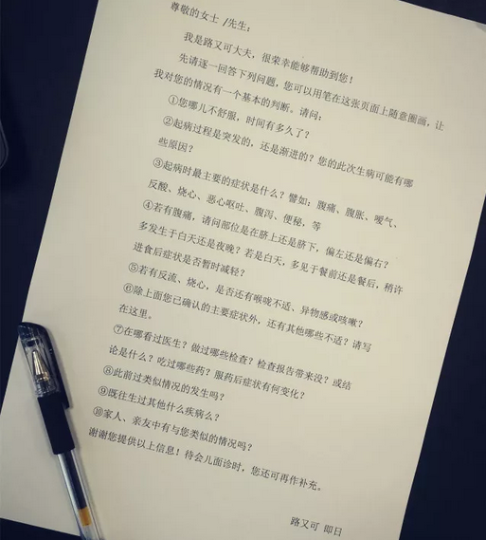 尊敬的女士 /先生：
我是路又可大夫，很荣幸能够帮助到您！
先请逐一回答下列问题，您可以用笔在这张页面上随意圈画，让
我对您的情况有一个基本的判断。请问：
①您哪儿不舒服，时间有多久了？
②起病过程是突发的，还是渐进的？您的此次生病可能有哪
些原因？
③起病时最主要的症状是什么？譬如：腹痛、腹胀、嗳气、
反酸、烧心、恶心呕吐、腹泻、便秘，等
④若有腹痛，请问部位是在脐上还是脐下，偏左还是偏右？
多发生于白天还是夜晚？若是白天，多见于餐前还是餐后，稍许
进食后症状是否暂时减轻？
⑤若有反流、烧心，是否还有喉咙不适、异物感或咳嗽？
⑥除上面您已确认的主要症状外，还有其他哪些不适？请写
在这里。
⑦在哪看过医生？做过哪些检查？检查报告带来没？或结
论是什么？吃过哪些药？服药后症状有何变化？
⑧此前过类似情况的发生吗？
⑨既往生过其他什么疾病么？
⑩家人、亲友中有与您类似的情况吗？
谢谢您提供以上信息！待会儿面诊时，您还可再作补充。
路又可 即日